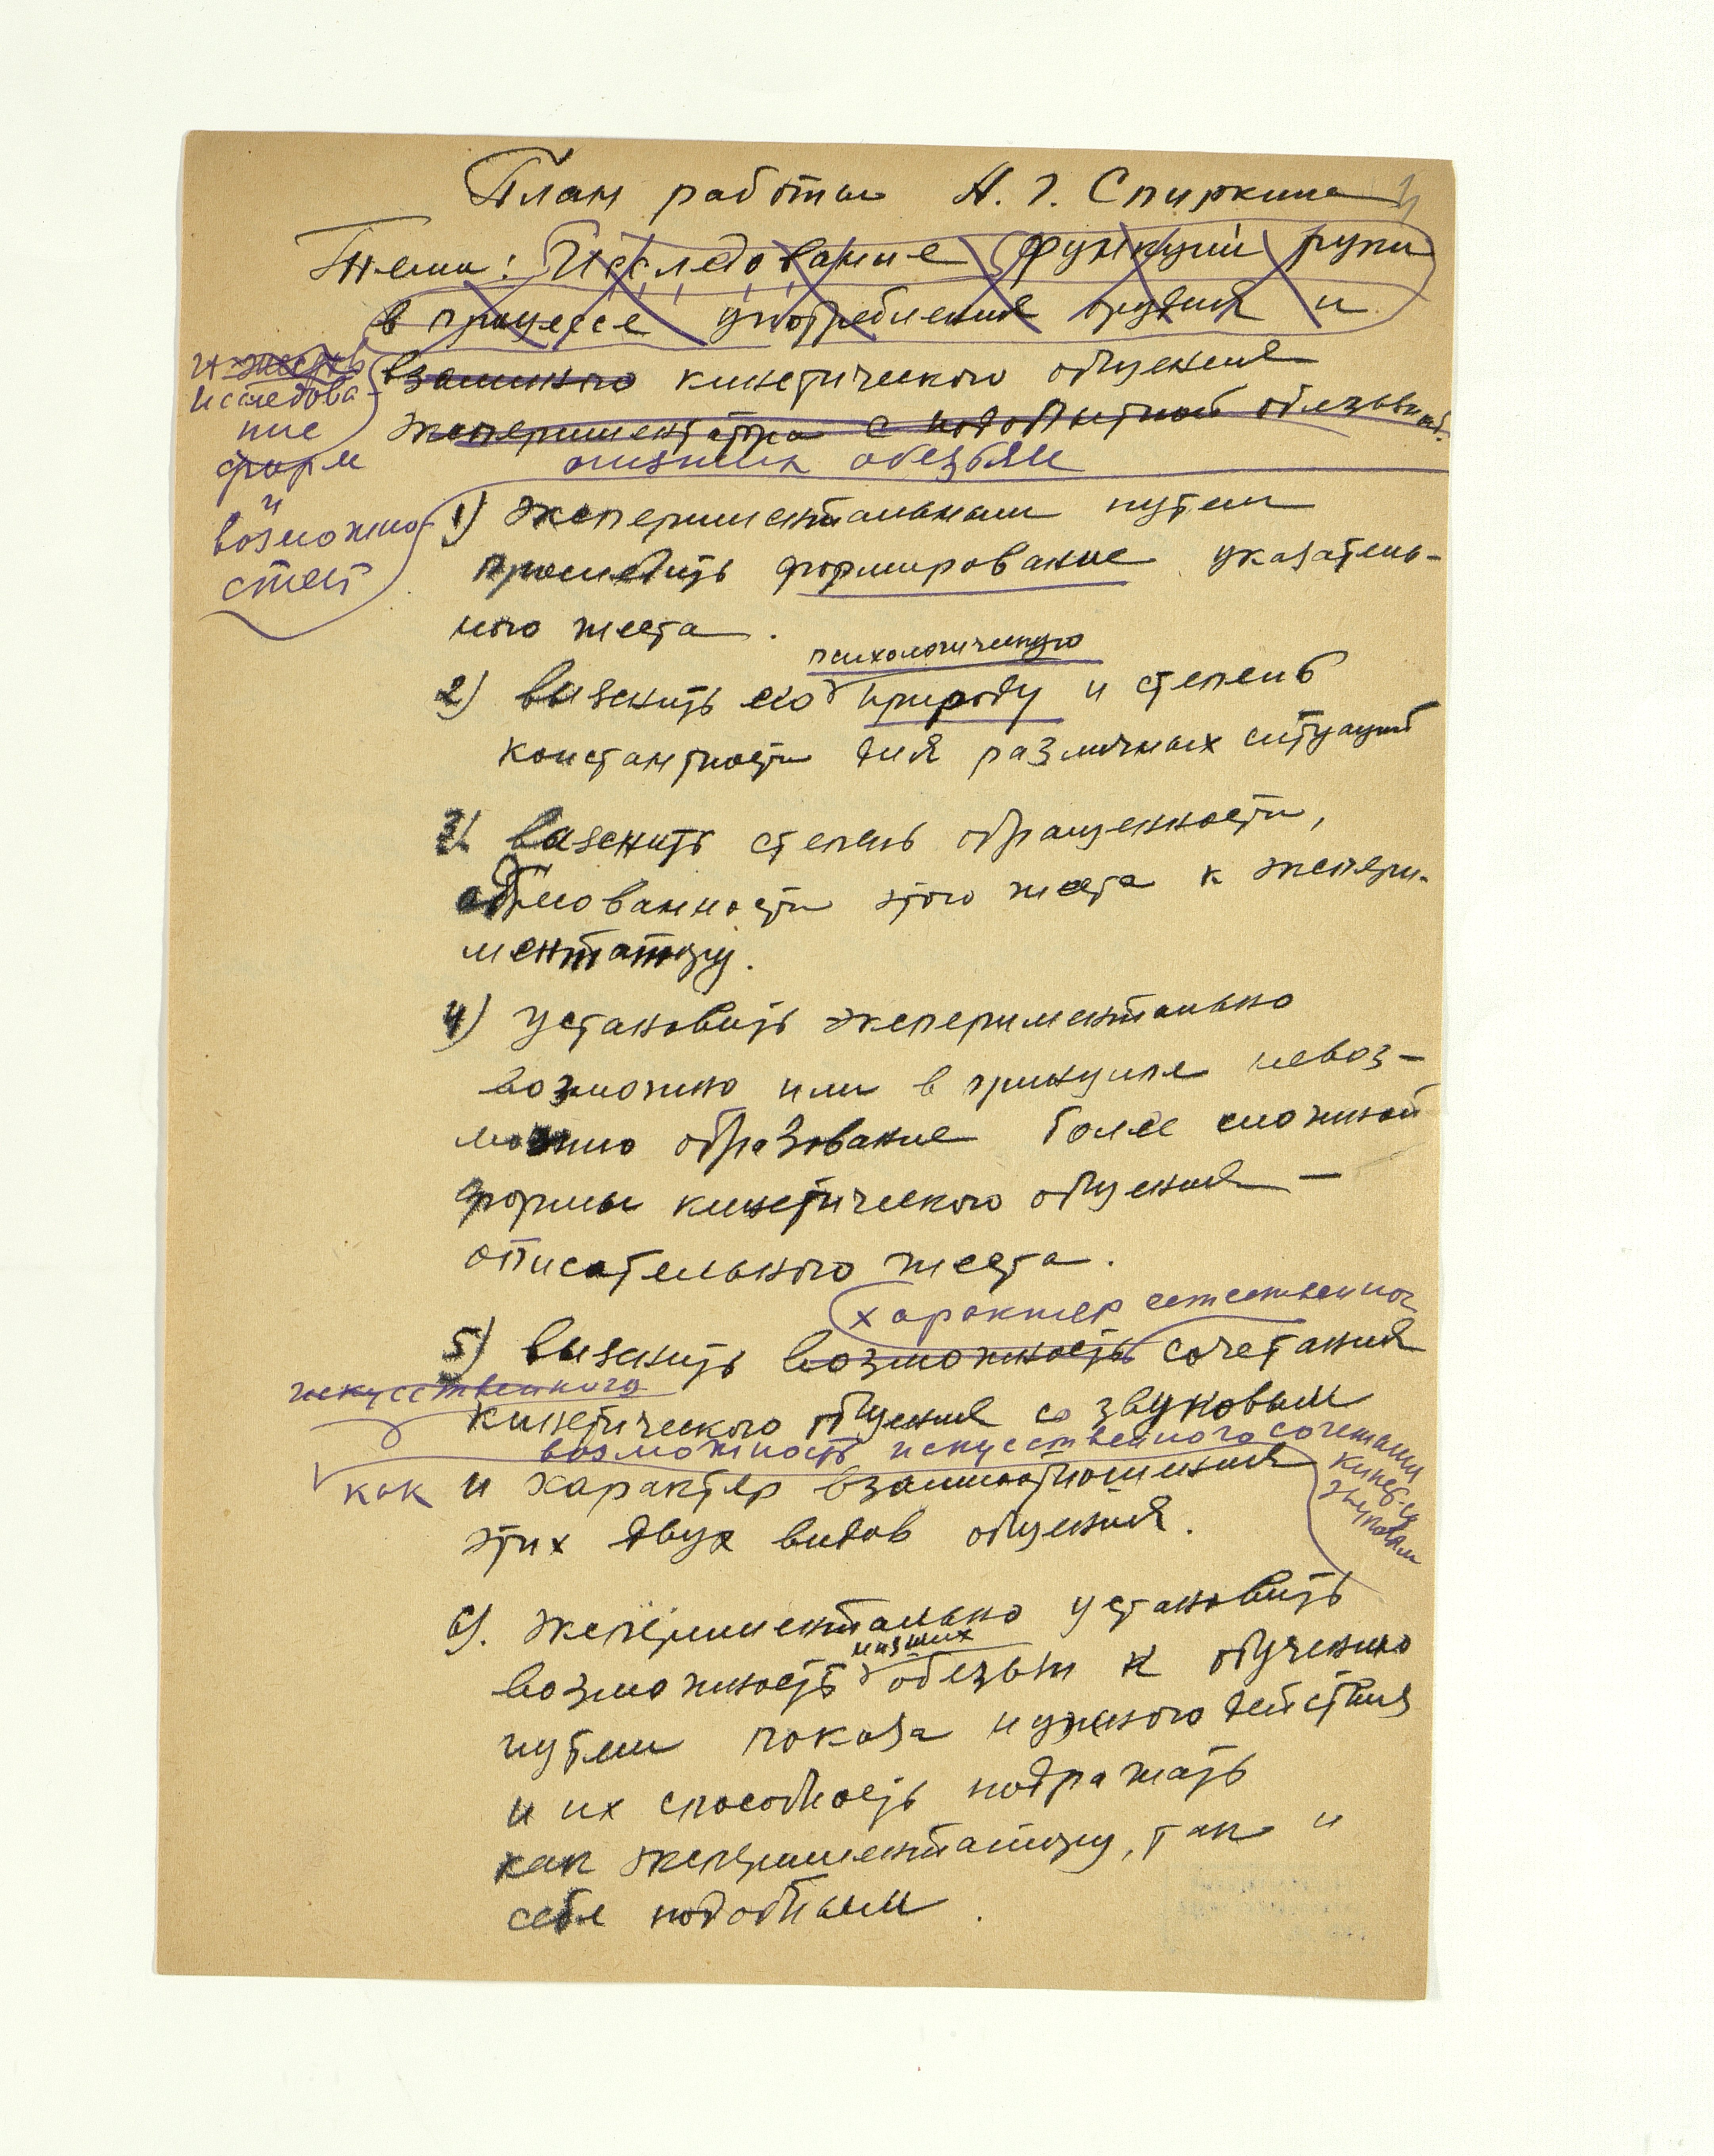 План работы А. Г. Спиркина
Тема: Исследование функций руки
в процессе употребления орудия и
взаимного кинетического общения
экспериментатора с подопытной обезьяной.
низших обезьян
исследова-
ние
форм
и
возможно-
стей
1) экспериментальным путем
проследить формирование указатель-
ного жеста.
психологическую
2) выяснить его природу и степень
константности для различных ситуаций
3) выяснить степень обращенности,
адресованности этого жеста к экспери-
ментатору.
4) установить экспериментально
возможно или в принципе невоз-
можно образование более сложной
формы кинетического общения —
описательного жеста.
характер естественного
5) выяснить возможность сочетания
искусственного
кинетического общения со звуковым
возможность искусственного сочетания
кинет. со
звуковым
как и характер взаимоотношения
этих двух видов общения.
6). экспериментально установить
низших
возможность обезьян к обучению
путем показа нужного действия
и их способность подражать
как экспериментатору, так и
себе подобным.